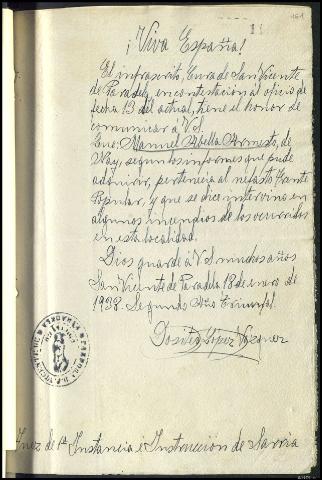 161
¡Viva España!
El infrascrito, Cura de San Vicente
de Paradela, en contestación al oficio de
fecha 13 del actual, tiene el honor de
comunicar á V.S.
Que: Manuel Abella Armesto, de
Nay, segun los informes que pude
adquirir, pertenecia al nefasto Frante
Popular, y que se dice intervino en
algunos incendios de los ocurridos
en esta localidad.
Dios guarde á V.S. muchos años
San Vicente de Paradela 18 de enero de
1938. Segundo Año Triunfal.
Dositeo López Vázquez
Juez de 1ª Instancia e Instrucción de Sarria